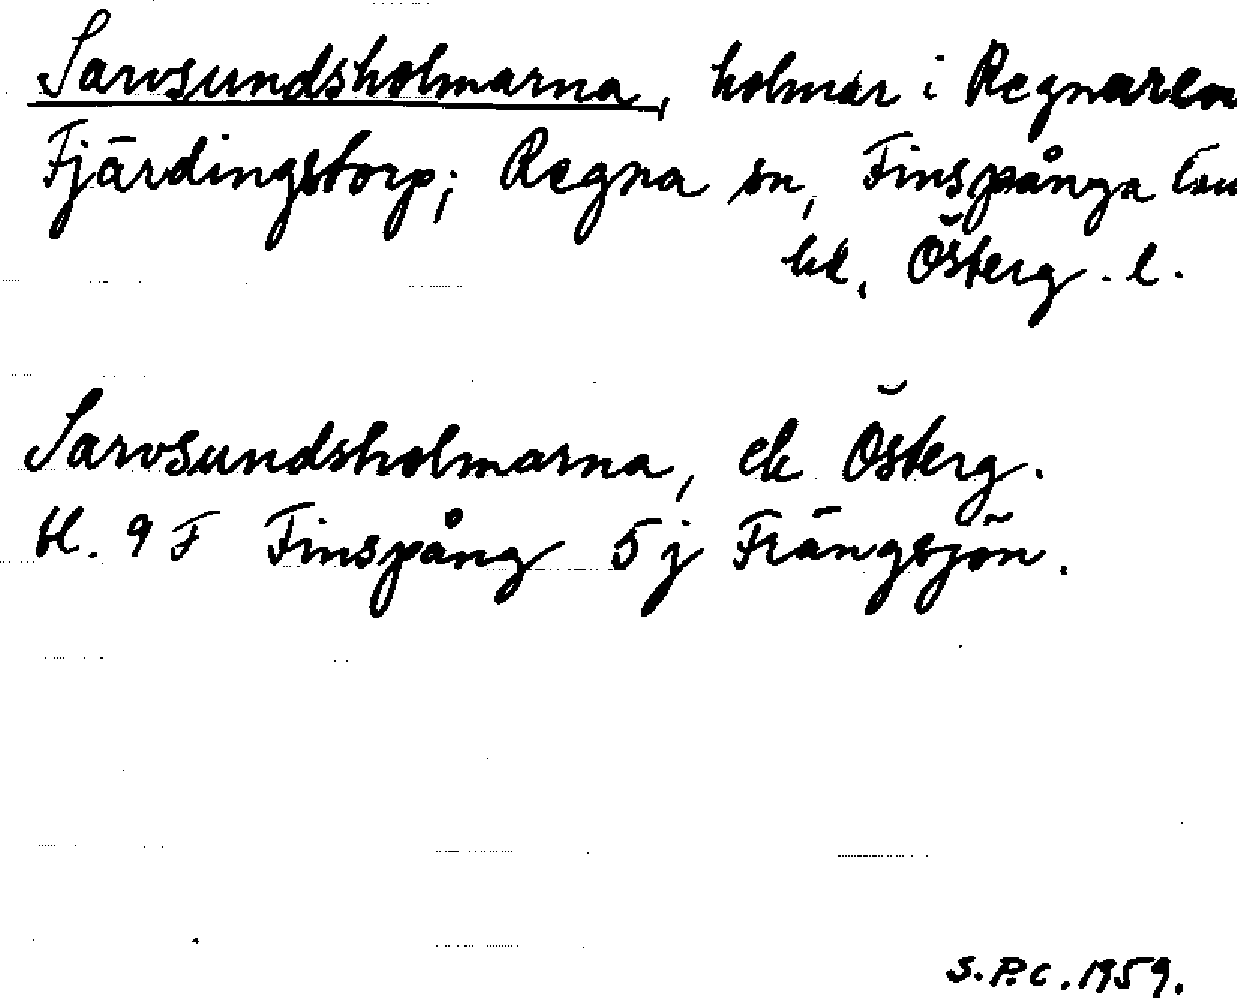 Sarvsundsholmarna, holmar i Regnaren
Fjärdingstorp; Regna sn, Finspånga
hd, Österg. l.
Sarvsundsholmarna, ek Österg.
bl. 9 F Finspång 5 j Frängsjön.
S.P.C. 1959.